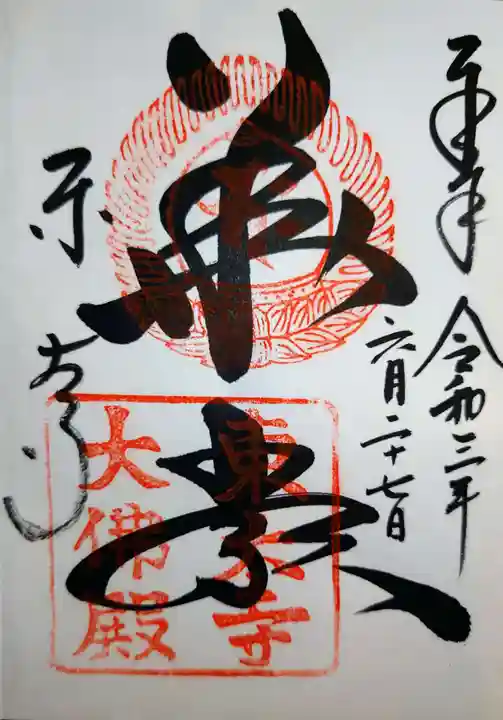 奉拝 令和三年
六月二十七日
華厳
東大寺
東大寺
大佛殿